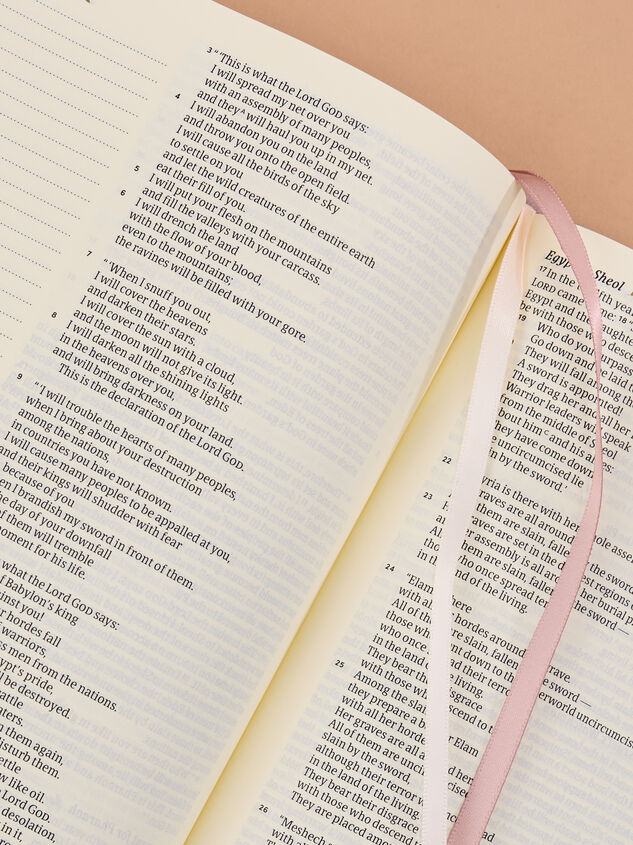 3 “‘This is what the Lord GOD says:
I will spread my net over you
with an assembly of many peoples,
and they^A will haul you up in my net.
4 I will abandon you on the land
and throw you onto the open field.
I will cause all the birds of the sky
to settle on you
and let the wild creatures of the entire earth
eat their fill of you.
5 I will put your flesh on the mountains
and fill the valleys with your carcass.
6 I will drench the land
with the flow of your blood,
even to the mountains;
the ravines will be filled with your gore.
7 “‘When I snuff you out,
I will cover the heavens
and darken their stars.
I will cover the sun with a cloud,
and the moon will not give its light.
8 I will darken all the shining lights
in the heavens over you,
and will bring darkness on your land.
This is the declaration of the Lord GOD.
9 “‘I will trouble the hearts of many peoples,
when I bring about your destruction
among the nations,
in countries you have not known.
I will cause many peoples to be appalled at you,
and their kings will shudder with fear
because of you
I brandish my sword in front of them.
day of your downfall
of them will tremble
for his life.
what the Lord GOD says:
of Babylon’s king
against you!
hordes fall
warriors,
men from the nations.
pride,
be destroyed.
them again,
disturb them.
settle
like oil.
Lord GOD.
desolation,
in it,
Sheol
17 In the year
LORD came 18
Egypt and the
be with those who
19 Who do you
Go down and be laid
They will fall among
A sword is appointed!
They drag her and all her
Warrior leaders will speak
from the middle of Sheol
about him^C and his
They have come down
the uncircumcised lie
slain by the sword.’
22 is there with her whole
graves are all around
them are slain, fallen the sword
23 graves are set in the regions of
her assembly is all around her burial
All of them are slain, fallen the sword —
those who once spread terror
in the land of the living.
24 “Elam is there
with all her hordes around her grave.
All of them are slain, fallen by the sword —
those who went down to the underworld
who once spread their terror
in the land of the living.
They bear their disgrace
with those who descend to
25 Among the slain
they prepare a bed for Elam
with all her hordes.
Her graves are all around
All of them are
slain by the sword,
although their terror
in the land of the living.
They bear their disgrace
with those who descend to
They are placed among
26 “Meshech
with all